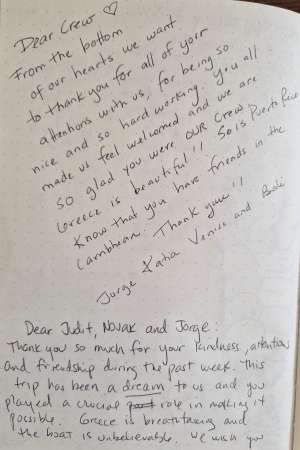 Dear Crew ♡
From the bottom
of our hearts we want
to thank you for all of your
attentions with us, for being so
nice and so hard working. you all
made us feel welcomed and we are
so glad you were OUR CREW.
Greece is beautiful!! So is Puerto Rico
Know that you have friends in the
Carribhean. Thank you!!
Jorge Katia Venice and
Dear Judit, Novak and Jorge:
Thank you so much for your kindness, attentions
and friendship during the past week. This
trip has been a dream to us and you
played a crucial role in making it
possible. Greece is breathtaking and
the boat is unbelievable. We wish you